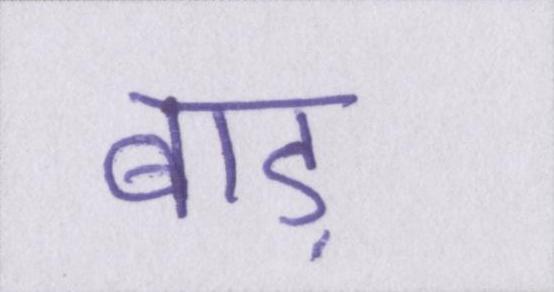 बाड़